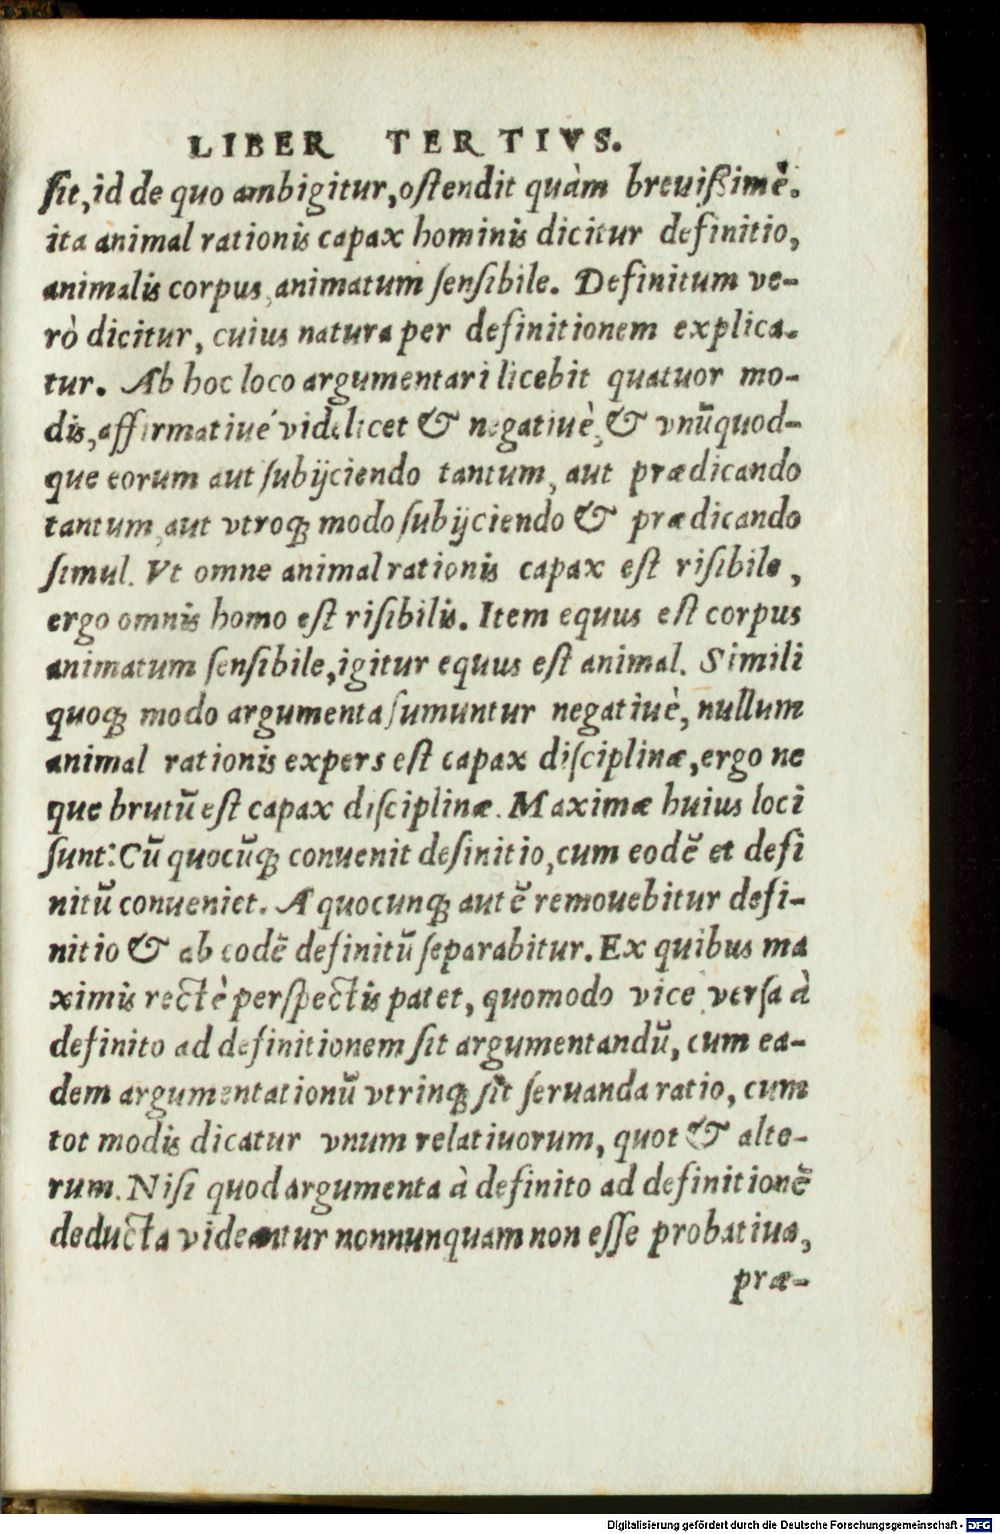 LIBER TERTIVS.
ſit, id de quo ambigitur, oſtendit quàm breuißimè.
ita animal rationis capax hominis dicitur definitio,
animalis corpus, animatum ſenſibile. Definitum ve-
rò dicitur, cuius natura per definitionem explica-
tur. Ab hoc loco argumentari licebit quatuor mo-
dis, affirmatiué videlicet & negatiuè, & vnũquod-
que eorum aut ſubijciendo tantum, aut prædicando
tantum, aut vtroq́ꝫ modo ſubijciendo & prædicando
ſimul. Vt omne animal rationis capax eſt riſibile,
ergo omnis homo eſt riſibilis. Item equus eſt corpus
animatum ſenſibile, igitur equus eſt animal. Simili
quoq́ꝫ modo argumenta ſumuntur negatiuè, nullum
animal rationis expers eſt capax diſciplinæ, ergo ne
que brutũ eſt capax diſciplinæ. Maximæ huius loci
ſunt: Cũ quocũq́ꝫ conuenit definitio, cum eodẽ et defi
nitũ conueniet. A quocunq́ꝫ autẽ remouebitur defi-
nitio & ab eodẽ definitũ ſeparabitur. Ex quibus ma
ximis rectè perſpectis patet, quomodo vice verſa à
definito ad definitionem ſit argumentandũ, cum ea-
dem argumentationũ vtrinq́ꝫ ſit ſeruanda ratio, cum
tot modis dicatur vnum relatiuorum, quot & alte-
rum. Niſi quod argumenta à definito ad definitionẽ
deducta videantur nonnunquam non eſſe probatiua,
præ-
Digitalisierung gefördert durch die Deutsche Forschungsgemeinschaft - DFG